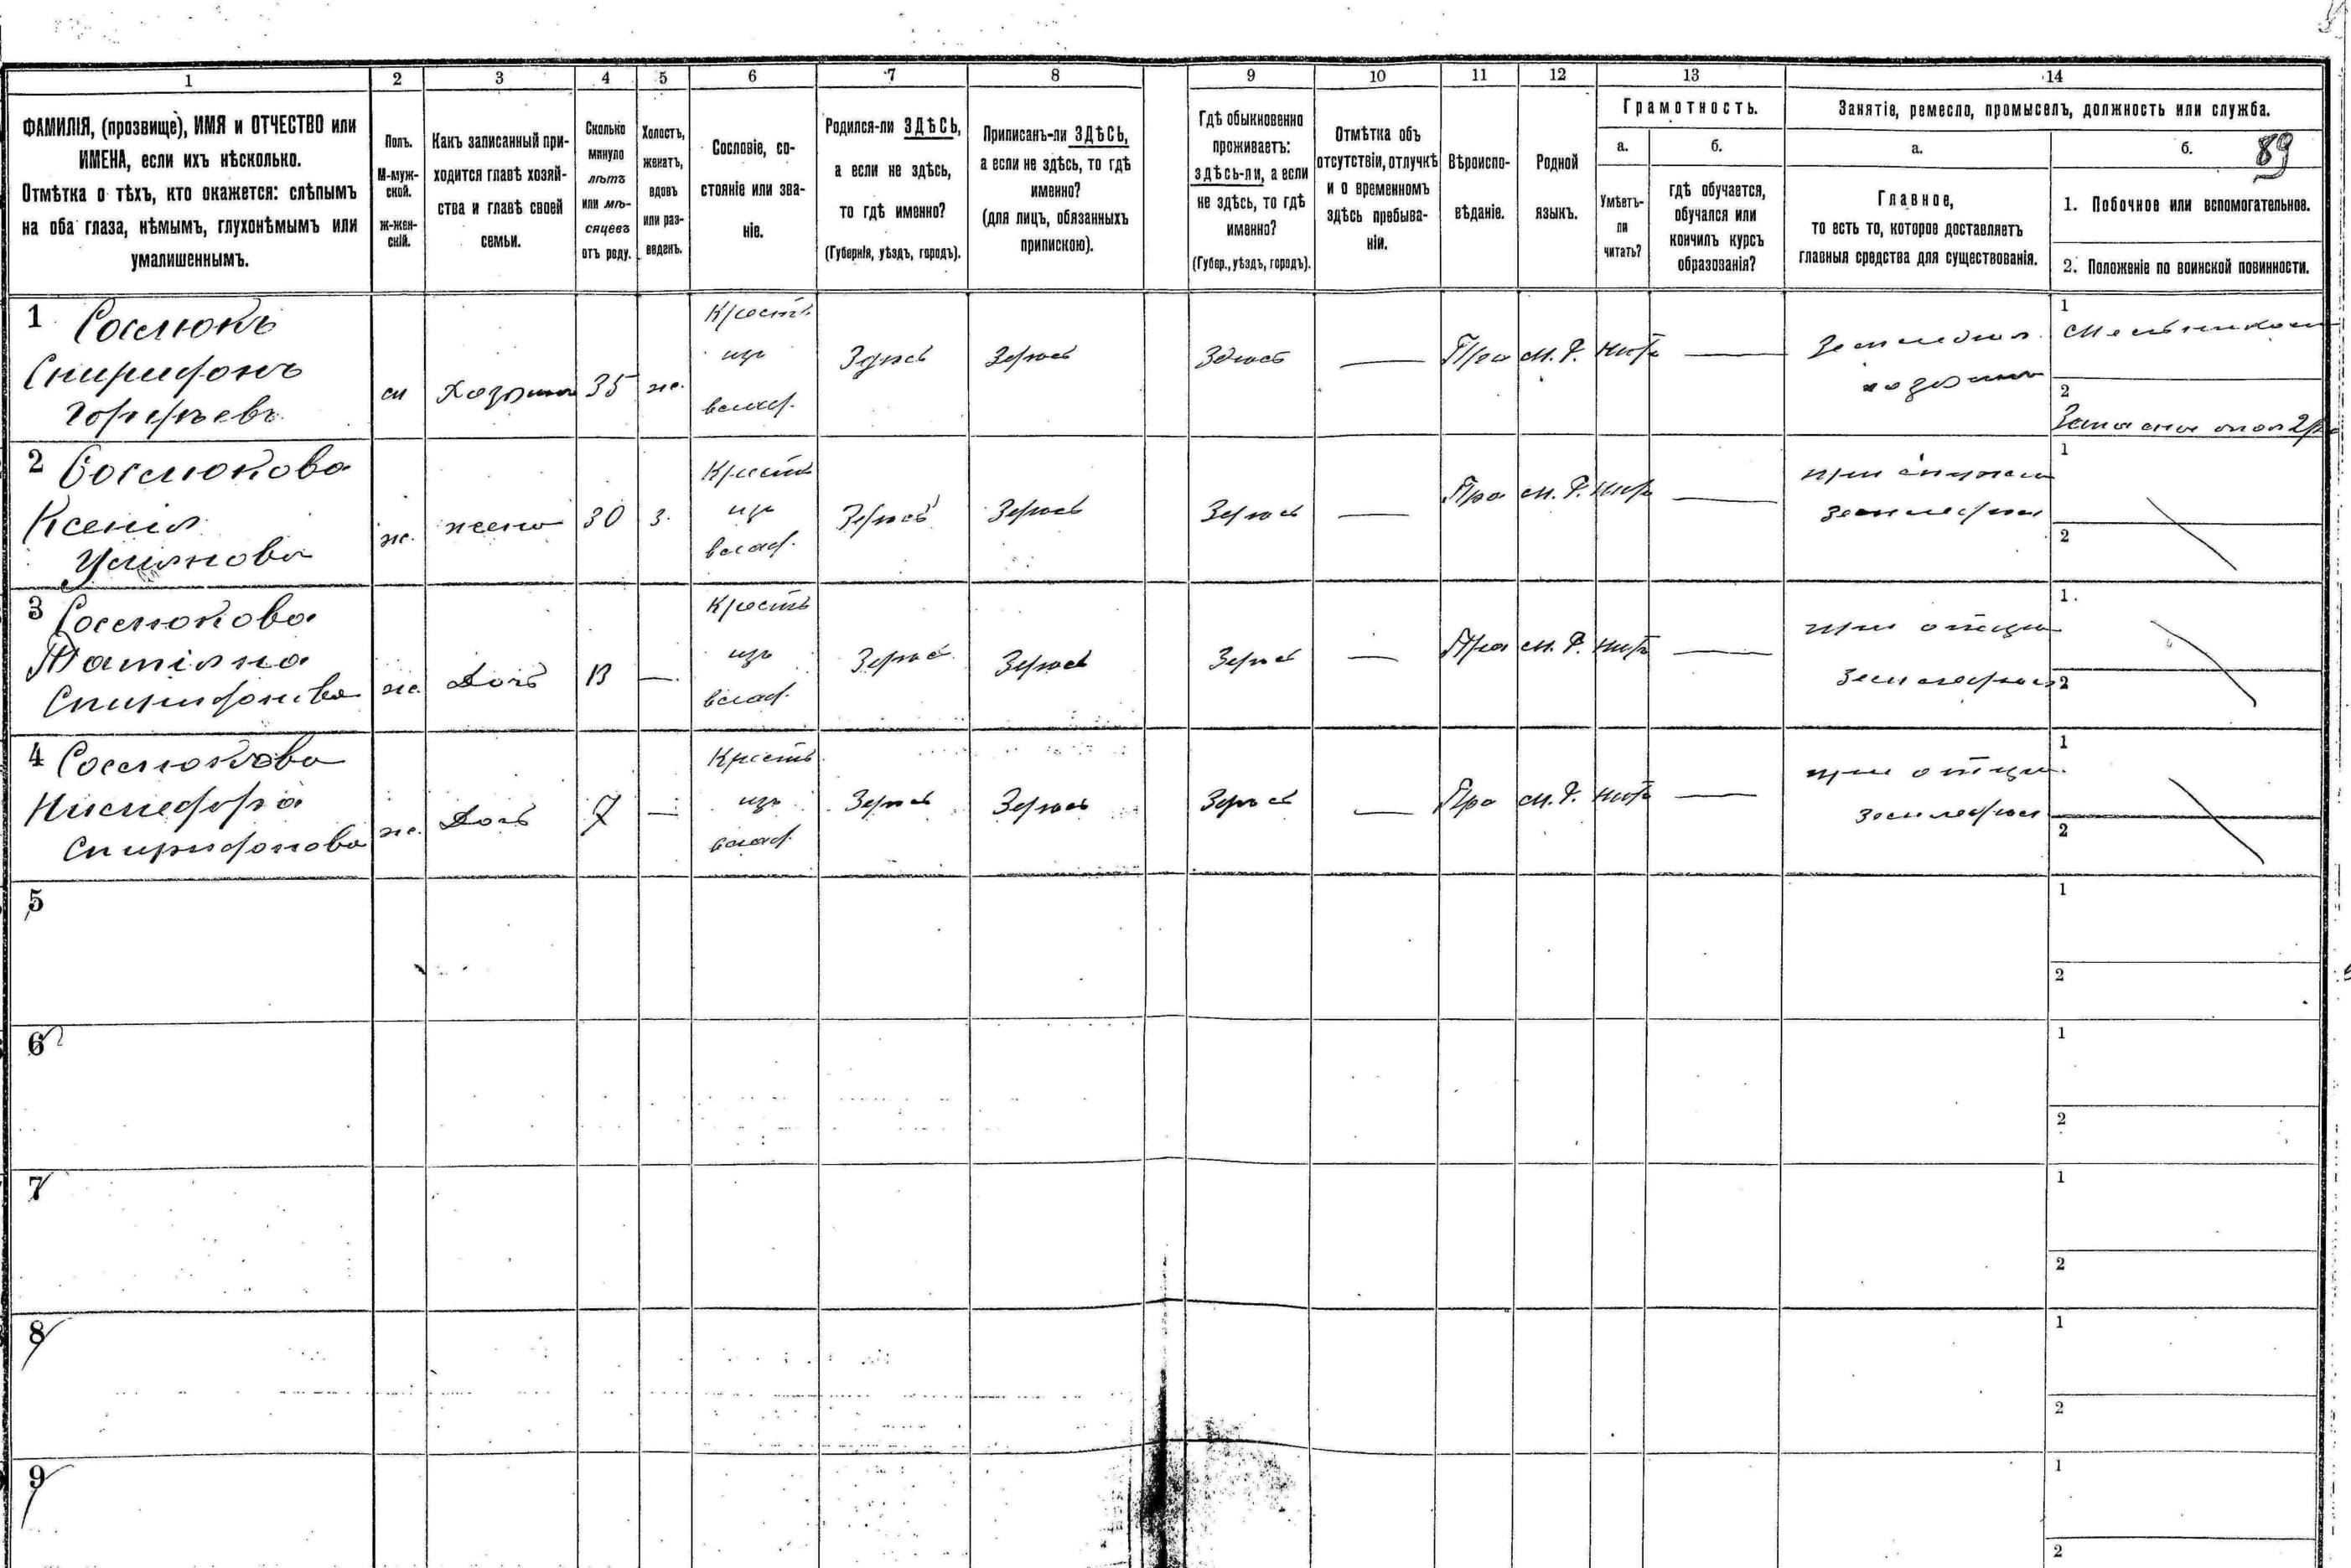 1 2 3 4 5 6 7 8 9 10 11 12 13 14
ФАМИЛІЯ, (прозвище), ИМЯ и ОТЧЕСТВО или
ИМЕНА, если ихъ нѣсколько.
Отмѣтка о тѣхъ, кто окажется: слѣпымъ
на оба глаза, нѣмымъ, глухонѣмымъ или
умалишеннымъ.
Полъ.
М-муж-
ской.
Ж-жен-
скій.
Какъ записанный при-
ходится главѣ хозяй-
ства и главѣ своей
семьи.
Сколько
минуло
лѣтъ
или мѣ-
сяцевъ
отъ роду.
Холостъ,
женатъ,
вдовъ
или раз-
веденъ.
Сословіе, со-
стояніе или зва-
ніе.
Родился-ли ЗДѢСЬ,
а если не здѣсь,
то гдѣ именно?
(Губернія, уѣздъ, городъ).
Приписанъ-ли ЗДѢСЬ,
а если не здѣсь, то гдѣ
именно?
(для лицъ, обязанныхъ
припискою).
Гдѣ обыкновенно
проживаетъ:
здѣсь-ли, а если
не здѣсь, то гдѣ
именно?
(Губер., уѣздъ, городъ).
Отмѣтка объ
отсутствіи, отлучкѣ
и о временномъ
здѣсь пребыва-
ніи.
Вѣроиспо-
вѣданіе.
Родной
языкъ.
Грамотность.
а.
Умѣетъ-
ли
читать?
б.
гдѣ обучается,
обучался или
кончилъ курсъ
образованія?
Занятіе, ремесло, промыселъ, должность или служба.
а.
Главное,
то есть то, которое доставляетъ
главныя средства для существованія.
б.
89
1. Побочное или вспомогательное.
2. Положеніе по воинской повинности.
1
Спиридонъ
м Хозяинъ 35 ж.
Крестъ
изъ
влад.
Здѣсь Здѣсь Здѣсь — Пра м. Р. нѣтъ —
хозяинъ
1
2
2
Ксенія
ж. жена 30 з.
Крестъ
изъ
влад.
Здѣсь Здѣсь Здѣсь — Пра м. Р. нѣтъ —
1
2
3
Спиридонова
ж. Дочь 13 —
Крестъ
изъ
влад.
Здѣсь Здѣсь Здѣсь — Пра м. Р. нѣтъ —
при отцѣ
1.
2
4
Спиридонова
ж. Дочь 7 —
Крестъ
изъ
влад.
Здѣсь Здѣсь Здѣсь — Пра м. Р. нѣтъ —
при отцѣ
1
2
5
1
2
6
1
2
7
1
2
8
1
2
9
1
2